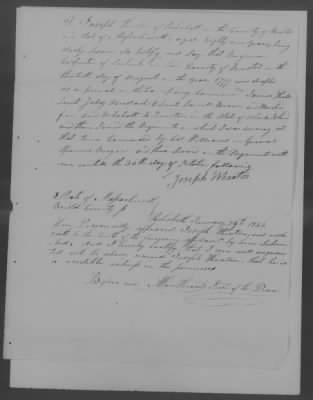 I, Joseph Wheaton of Rehoboth in the County of Bristol
and State of Massachusetts, aged Eighty one years, being
duly sworn do testify and say that Benjamin
Carpenter of Rehoboth in said County of Bristol on the
thirtieth day of August in the year 1777 was drafted
as a private in the Company Commanded James
Lieut Jabez Bullard & Lieut Samuel Moore and Marched
from said Rehoboth to in the State of Rhode Island
and there Joined the Regiment in which I was serving at
that time Commanded by Col Williams General
Spencers Brigade and there served in the Regiment with
me until the 30th day of October following
Joseph Wheaton
State of Massachusetts
Bristol County ss Rehoboth January 29th
Then Personally appeared Joseph Wheaton and made
oath to the truth of the foregoing affidavit by him Subscri-
bed. And I hereby certify that I am well acquain-
ted with the above named Joseph Wheaton that he is
a credible in the premises
Before me Just of the Peace